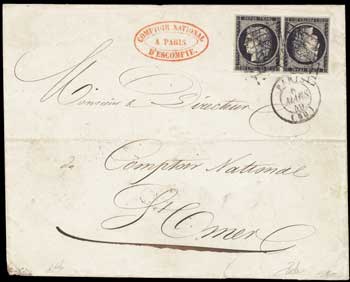 COMPTOIR NATIONAL
A PARIS
D'ESCOMPTE.
PARIS
MARS
(60)
Monsieur le Directeur
du Comptoir National
St Omer